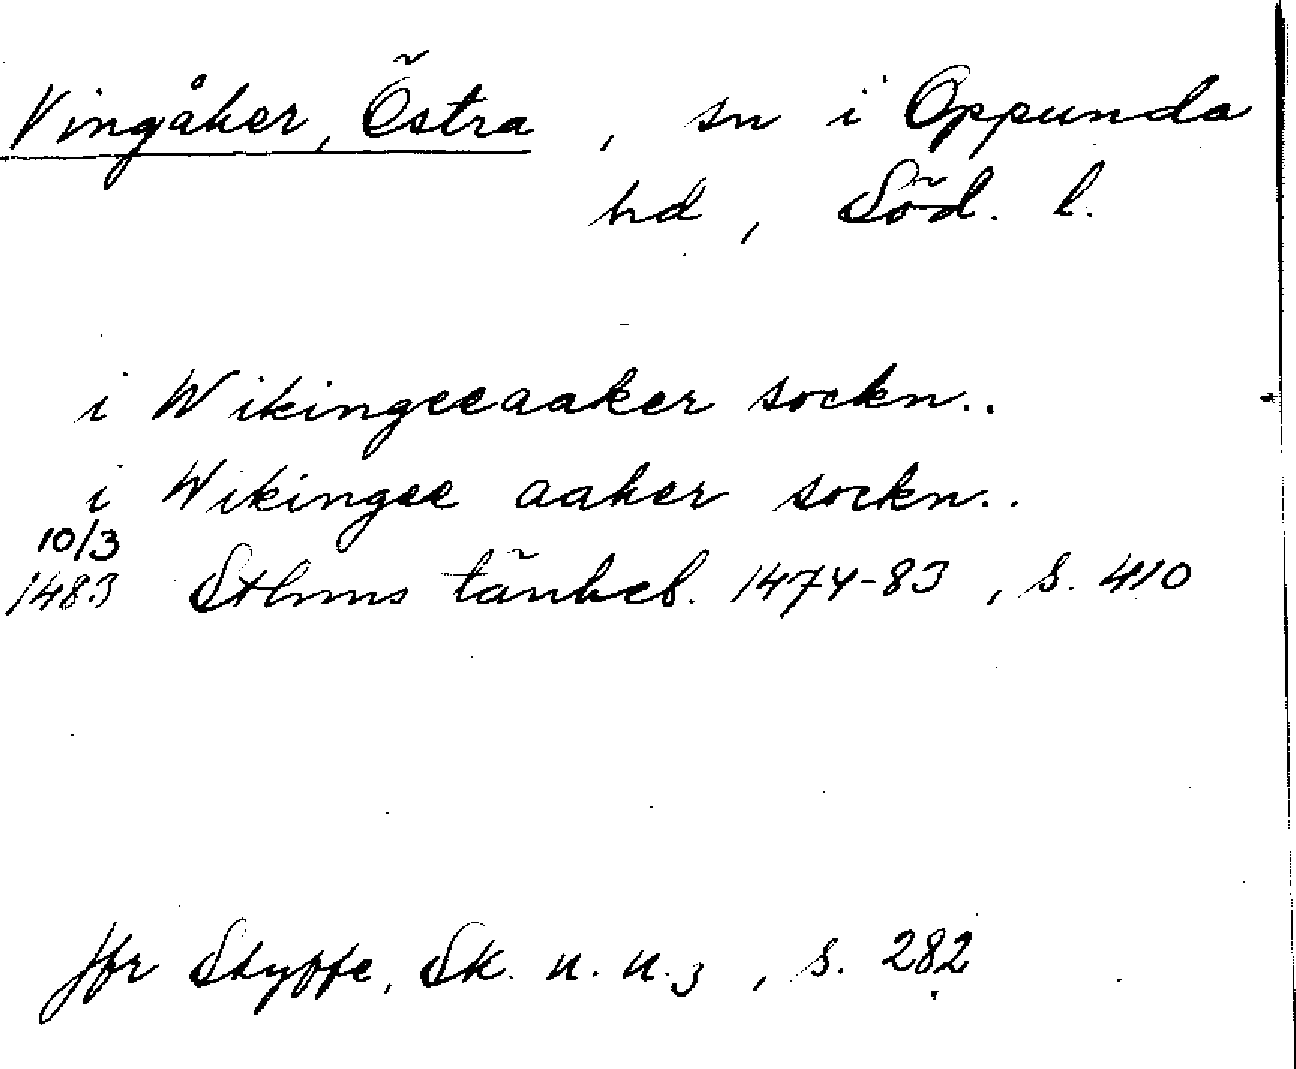 Vingåker, Östra, sn i Oppunda
hd, Söd. l.
i Wikingeeaaker sockn..
i Wikingee aaker sockn..
10/3
1483 Sthms tänkeb. 1474-83, s. 410
Jfr Styffe, Sk. u. u.3, s. 282